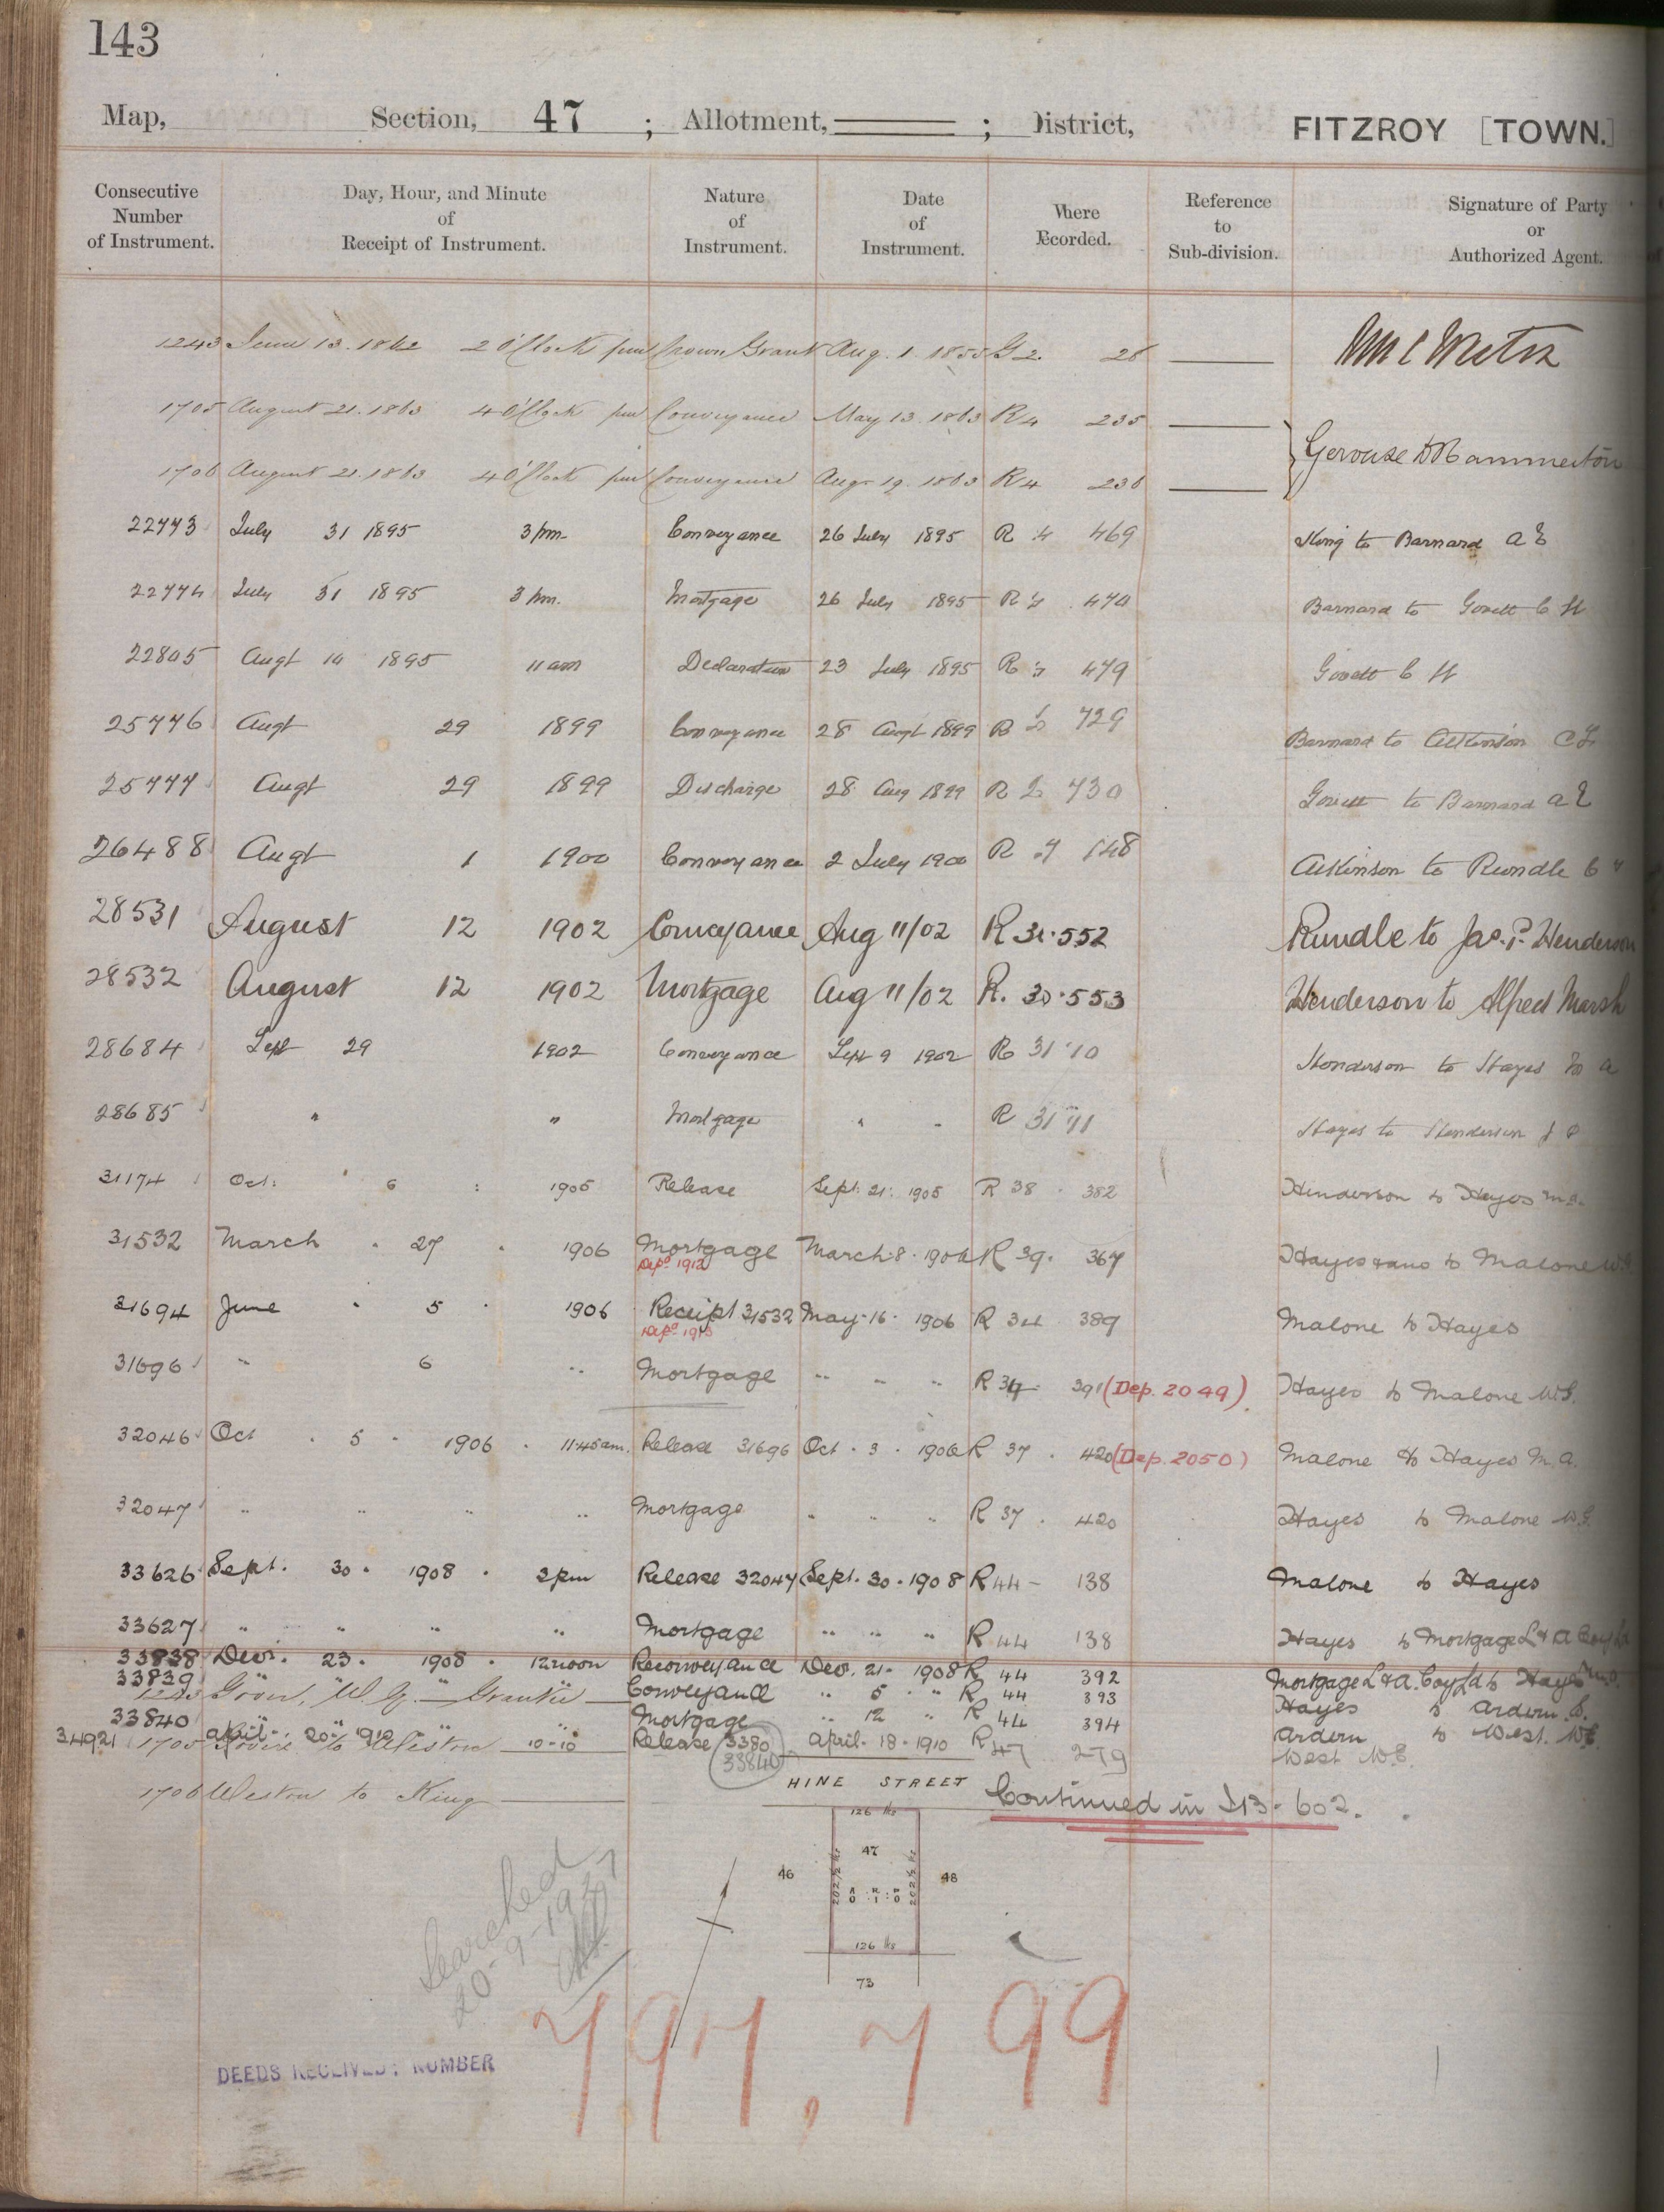 143
Map, Section, 47 ; Allotment, ; District, FITZROY [TOWN.]
Consecutive Number of Instrument. Day, Hour, and Minute of Receipt of Instrument. Nature of Instrument. Date of Instrument. Where Recorded. Reference to Sub-division. Signature of Party or Authorized Agent.
1243 June 13. 1862 2 O'Clock pm Crown Grant Aug. 1. 1855 G 2. 28
1705 August 21. 1863 4 O'Clock pm Conveyance May 13 1863 R 4 235
1706 August 21. 1863 4 O'Clock pm Conveyance Aug 19. 1863 R 4 236
22773 July 31 1895 3 pm Conveyance 26 July 1895 R 469 King to Barnard A E
22774 July 31 1895 3 pm. Mortgage 26 July 1895 R 470 Barnard to Govett C H
22805 Augt 14 1895 11 am Declaration 23 July 1895 R 479 Govett C H
25776 Augt 29 1899 Conveyance 28 Augt 1899 R 729 Barnard to Atkinson
25777 Augt 29 1899 Discharge 28 Aug 1899 R 730 Govett to Barnard A E
26488 Augt 1 1900 Conveyance 2 July 1900 R 148 Atkinson to Rundle
28531 August 12 1902 Conveyance Aug 11/02 R 552 Rundle to Jas. P. Henderson
28532 August 12 1902 Mortgage Aug 11/02 R. 30. 553 Henderson to Alfred Marsh
28684 Sept 29 1902 Conveyance Sept 9 1902 R 31 10 Henderson to Hayes M A
28685 " " Mortgage " " R 31 11 Hayes to Henderson J P
31174 Oct: 6 : 1905 Release Sept: 21: 1905 R 38 . 382 Henderson to Hayes M.A.
31532 March . 27 . 1906 Mortgage March. 8. 1906 R 39. 367 Hayes to Malone
Depd 1912
31694 June . 5 . 1906 Receipt 31532 May. 16. 1906 R 34 389 Malone to Hayes
Depd 1913
31696 " 6 " Mortgage " " " R 34 391 (Dep. 2049). Hayes to Malone W.G.
32046 Oct . 5 . 1906 . 11.45 am. Release 31696 Oct . 3 . 1906 R 37 . 420 (Dep. 2050) Malone to Hayes M.A.
32047 " " " " Mortgage " " " R 37 . 420 Hayes to Malone W.G.
33626 Sept. 30. 1908 . 3 pm Release 32047 Sept. 30. 1908 R 44 - 138 Malone to Hayes
33627 " " " " Mortgage " " " R 44 138 Hayes to Mortgage L & A Coy Ld
33838 Decr. 23. 1908 . 12 noon Reconveyance Decr. 21. 1908 R 44 392 Mortgage L & A. Coy Ld to Hayes M.A.
33839 " Conveyance " 5 " R 44 393 Hayes to Ardern S.
1243 Govr, N. Z. Grantee
33840 " " " " Mortgage " 12 " R 44 394 Ardern to West. W.E.
34921 April. 20. 1910 10-10 Release 3380 April. 18. 1910 R 47 279 West W.E.
33840
1705 to Weston
1706 Weston to King
HINE STREET
Continued in I13. 602.
126 lks
47
46
48
202 1/2 lks
202 1/2 lks
A R P
0 : 1 : 0
126 lks
73
Searched
20-9-1927
797, 799
DEEDS RECEIVED: NUMBER